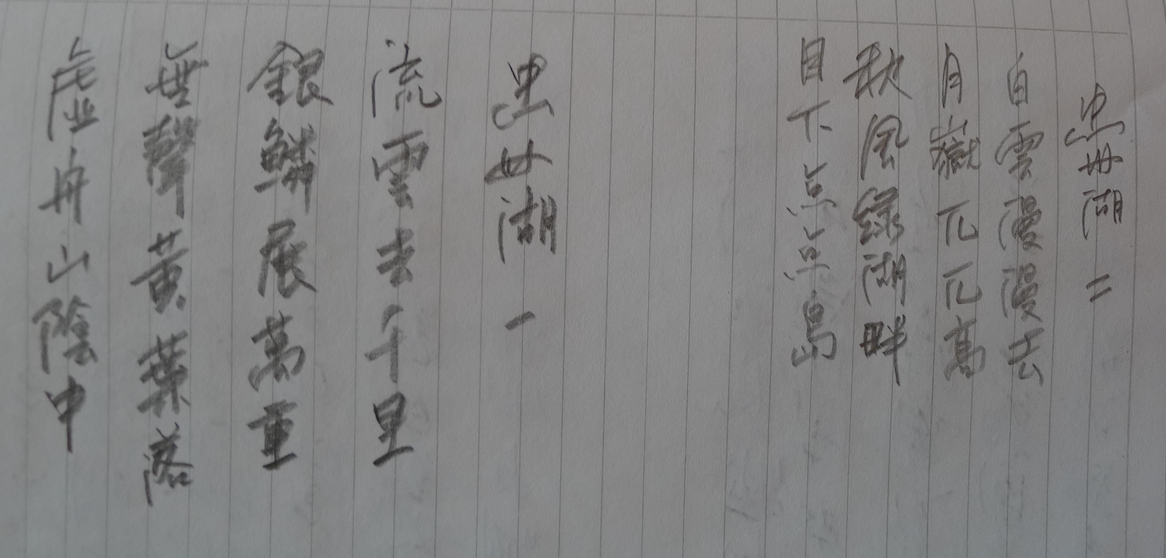 湖 二
白雲漫漫去
月嶽兀兀高
秋風緑湖畔
目下点点島
湖 一
流雲去千里
銀鱗展萬重
無聲黃葉落
虛舟山陰中